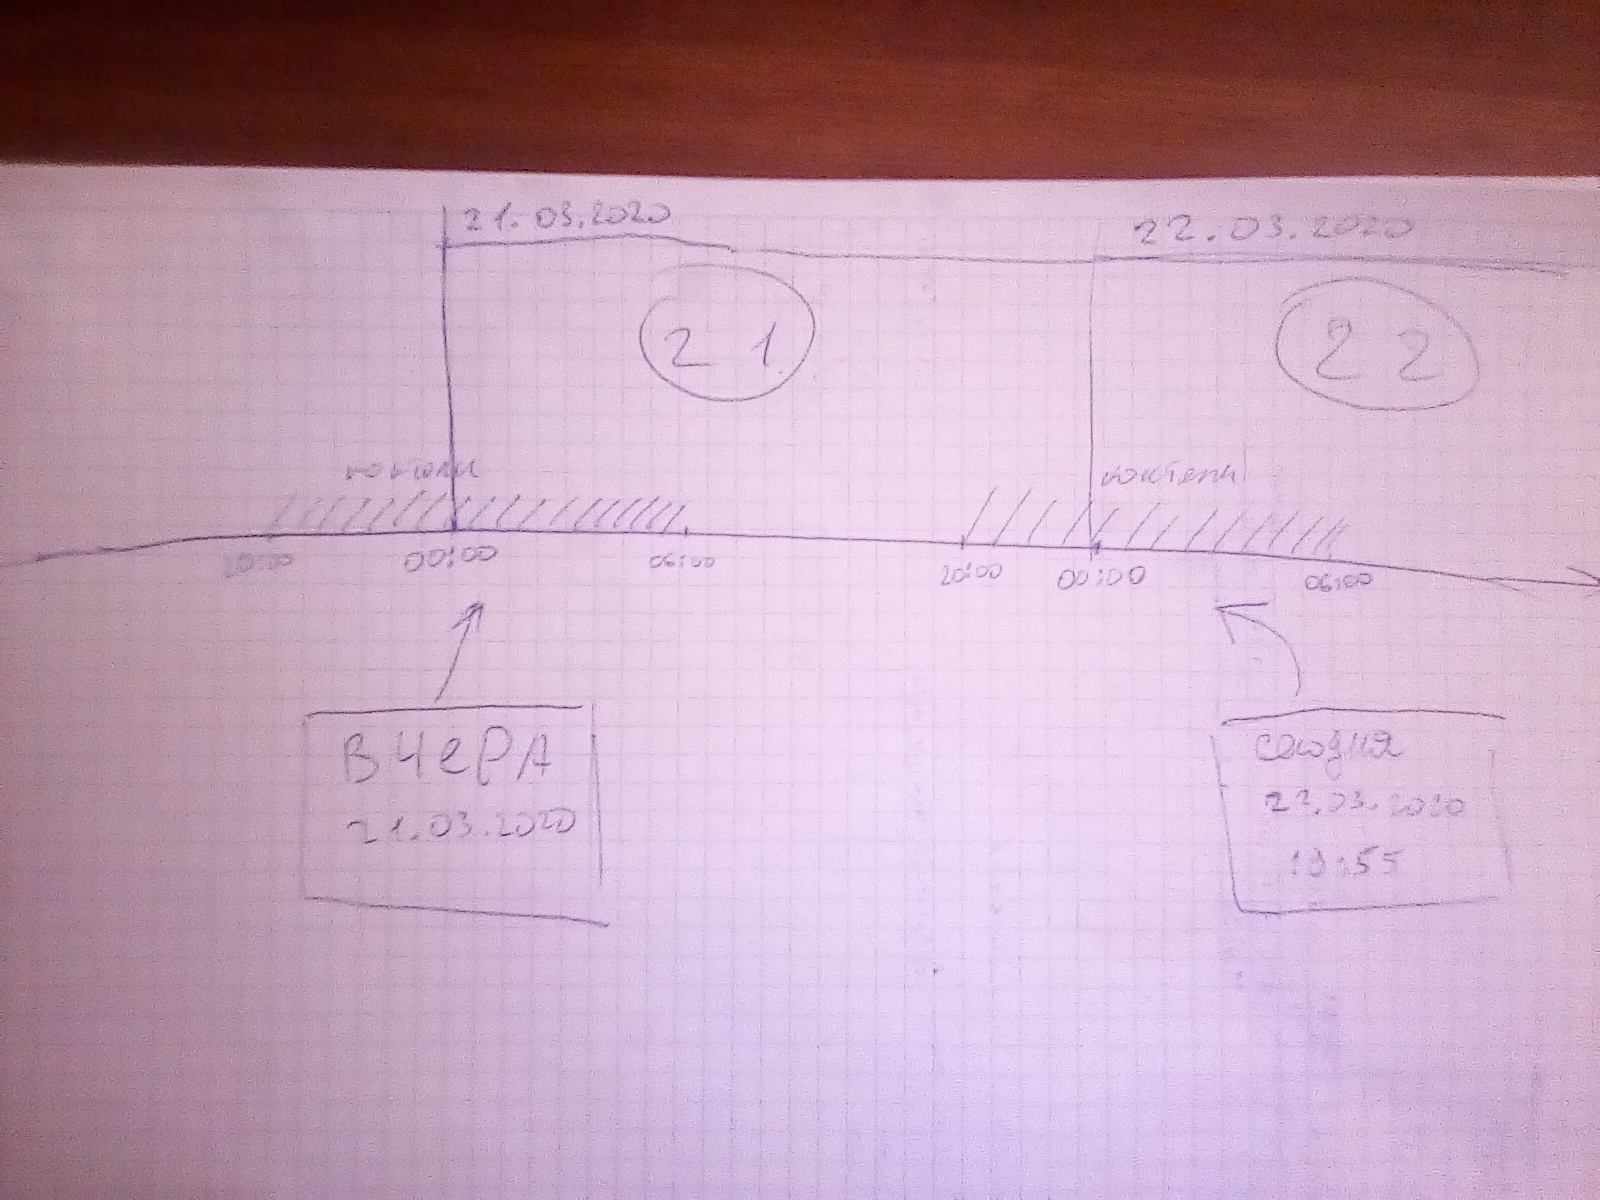 21.03.2020
22.03.2020
21
22
коктели
коктели
20:00
00:00
06:00
20:00
00:00
06:00
ВЧеРА
21.03.2020
сегодня
22.03.2020
19:55